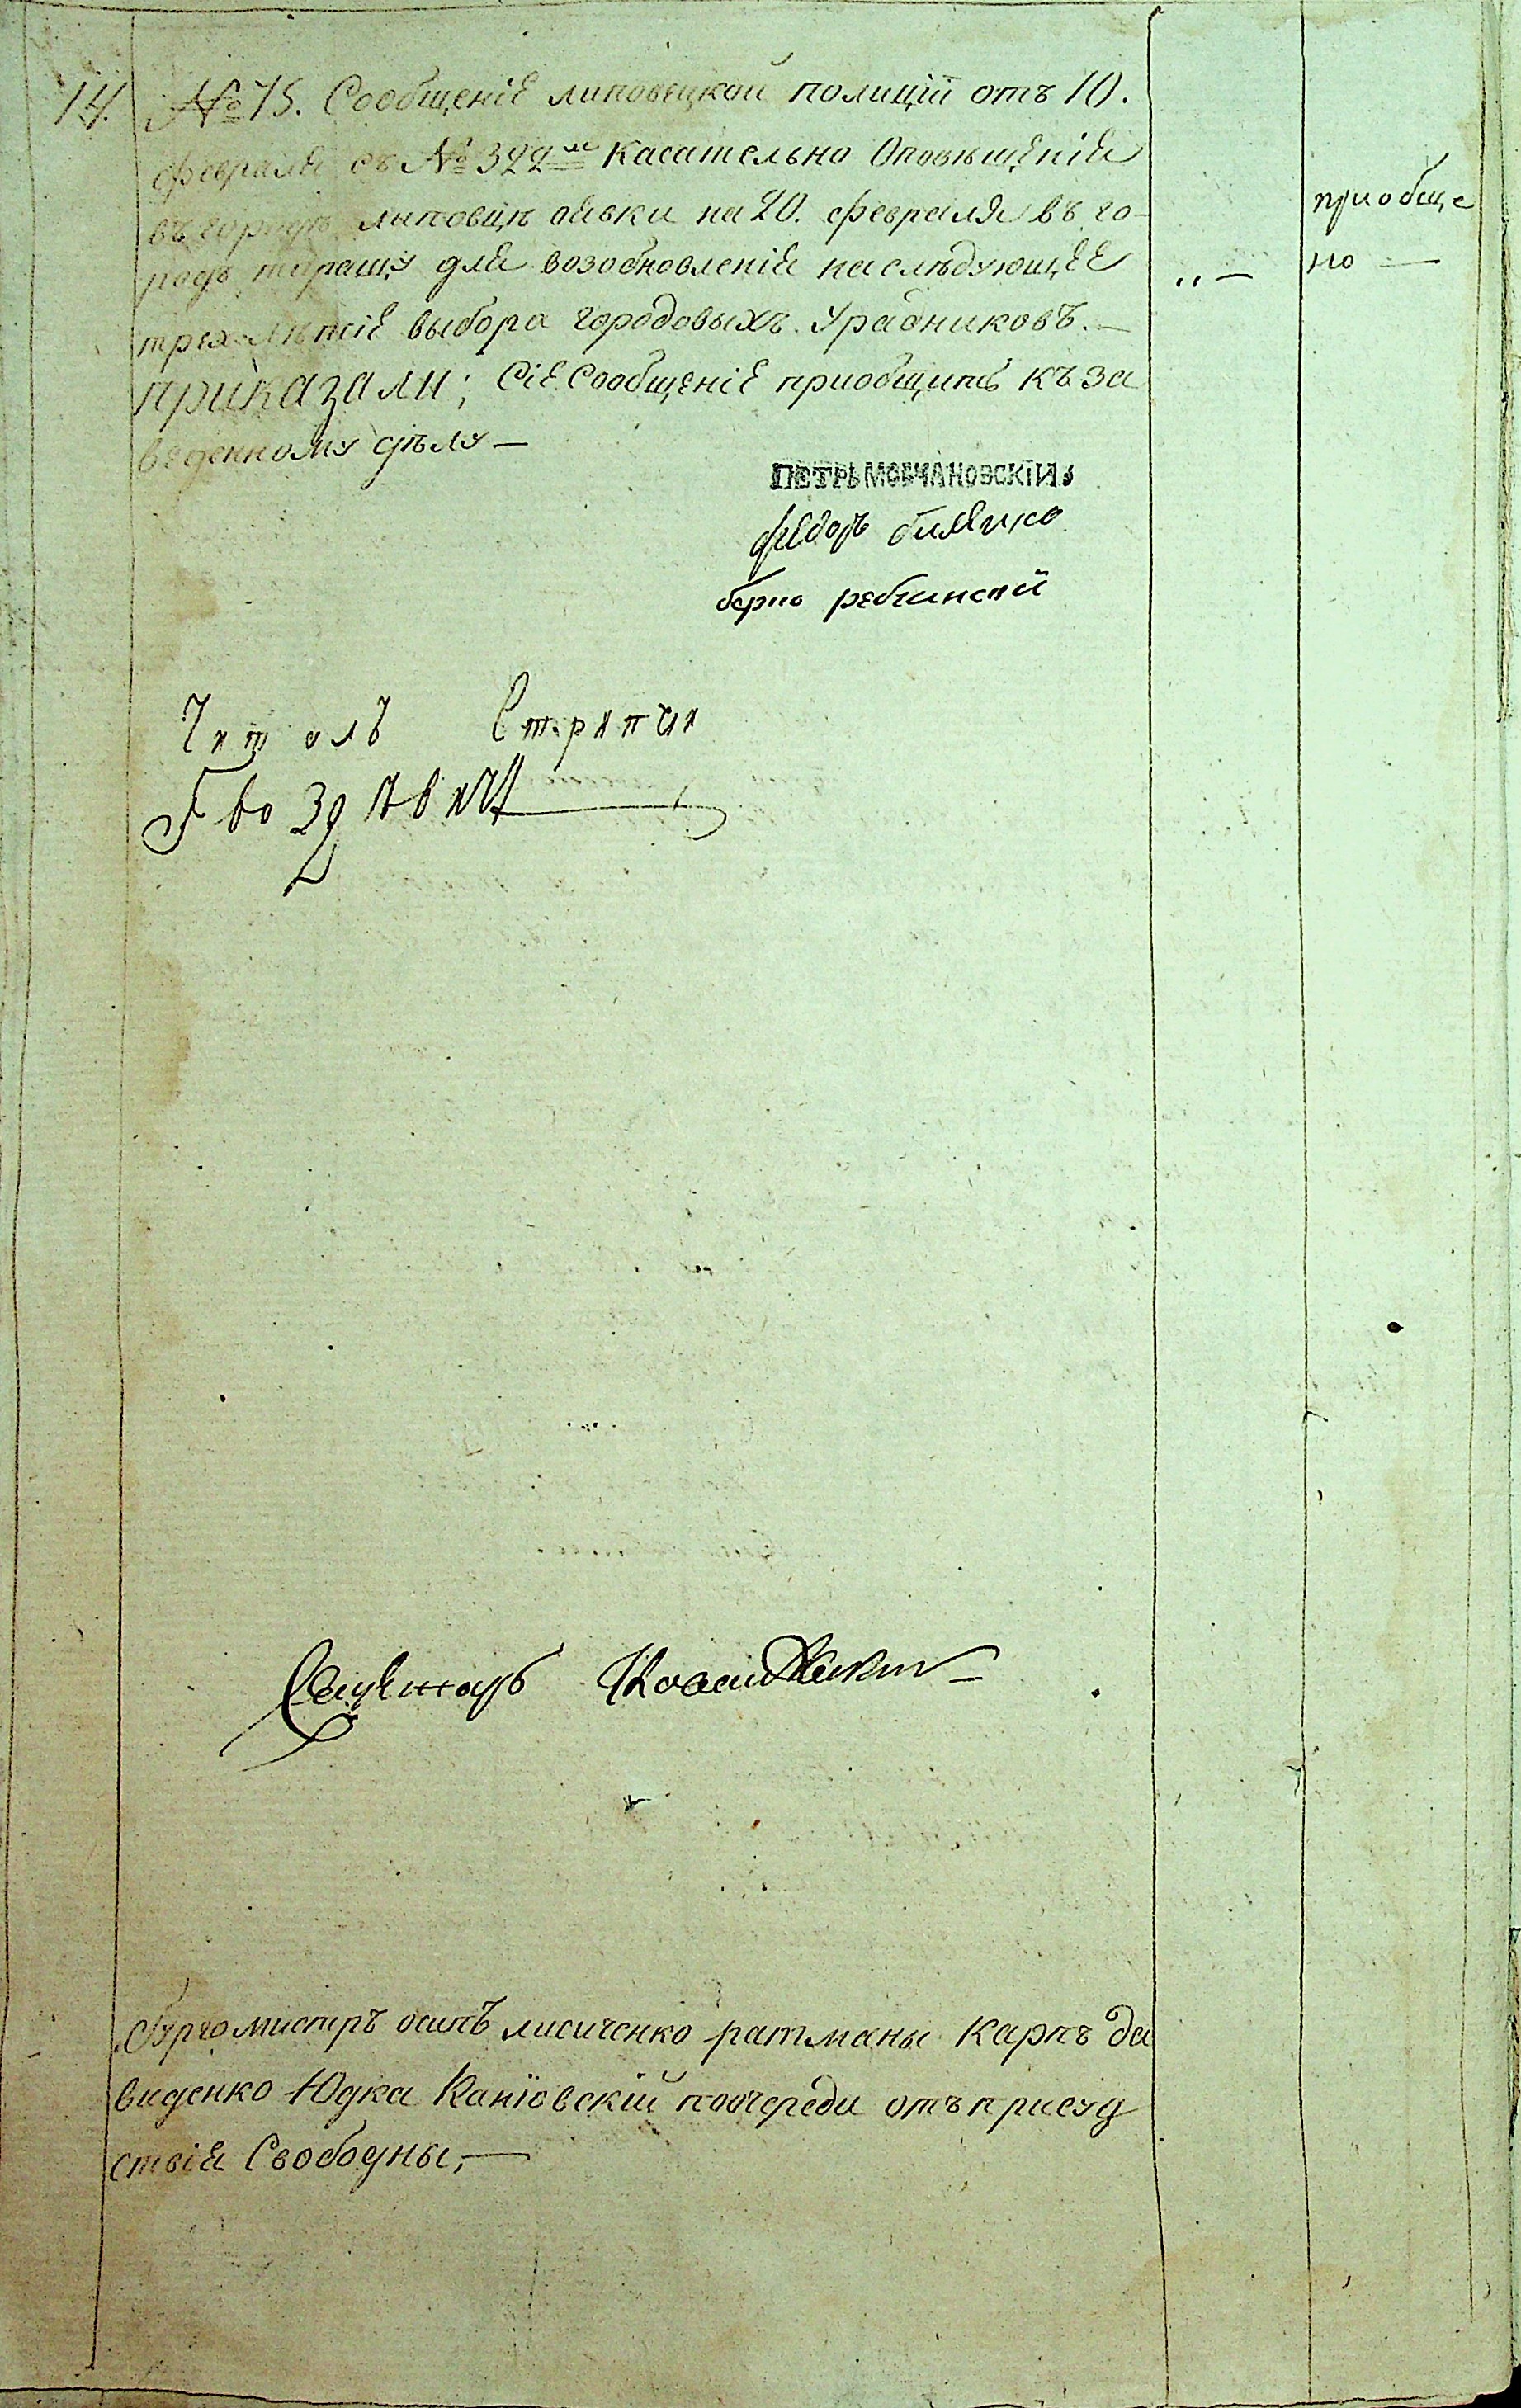 14. № 75. Сообщеніе липовецкой полиціи отъ 10.
февраля съ № 322м касательно оповѣщенія
въ городѣ липовцѣ явки на 20. февраля въ го-
родъ таращу для возобновленія на слѣдующее
трех лѣтіе выбора городовыхъ урядниковъ. —
приказали; Сіе сообщеніе приобщить къ за
веденному дѣлу —
приобще
но —
ПЕТРЬ МОВЧАНОВСКІЙ
федоръ
берко
Читалъ Стряпчи
Гвоздѣвичъ
Секретарь
Бургомистръ осипъ лисиченко ратманы Карпъ да
виденко Юдка Каніовскій поочереди отъ присуд
ствія Свободны, —